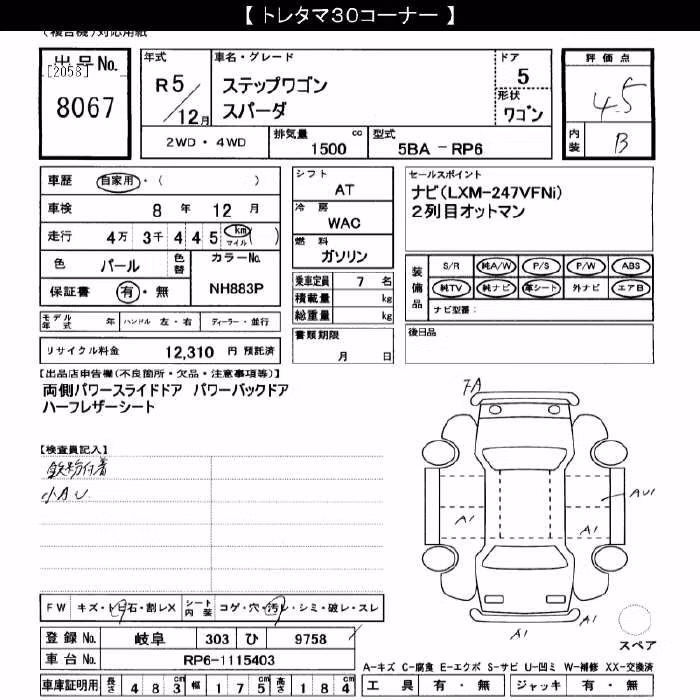 【 トレタマ30コーナー 】
(複合機)対応用紙
出品No.
[2058]
8067
年式
R5/12月
車名・グレード
ステップワゴン
スパーダ
ドア
5
形状
ワゴン
評価点
4.5
内装
B
2WD・4WD
排気量
1500 cc
型式
5BA -RP6
車歴
自家用・( )
車検
8年 12月
走行
4万 3千 4 4 5 km マイル ( )
色
パール
色替
カラーNo.
NH883P
保証書
有・無
シフト
AT
冷房
WAC
燃料
ガソリン
乗車定員 7 名
積載量 kg
総重量 kg
書類期限
月 日
セールスポイント
ナビ(LXM-247VFNi)
2列目オットマン
装備品
S/R 純A/W P/S P/W ABS
純TV 純ナビ 革シート 外ナビ エアB
ナビ型番:
後日品
モデル年式 年 ハンドル 左・右 ディーラー・並行
リサイクル料金 12,310 円 預託済
【出品店申告欄(不良箇所・欠品・注意事項等)】
両側パワースライドドア パワーバックドア
ハーフレザーシート
【検査員記入】
鉄粉付着
小AU
FA
AU1
A1
A1
A1
A1
FW キズ・トビ石・割レX シート内装 コゲ・穴・汚レ・シミ・破レ・スレ
登録No. 岐阜 303 ひ 9758
車台No. RP6-1115403
車庫証明用 長さ 483cm 幅 175cm 高さ 184cm
スペア
A-キズ C-腐食 E-エクボ S-サビ U-凹ミ W-補修 XX-交換済
工具 有・無 ジャッキ 有・無